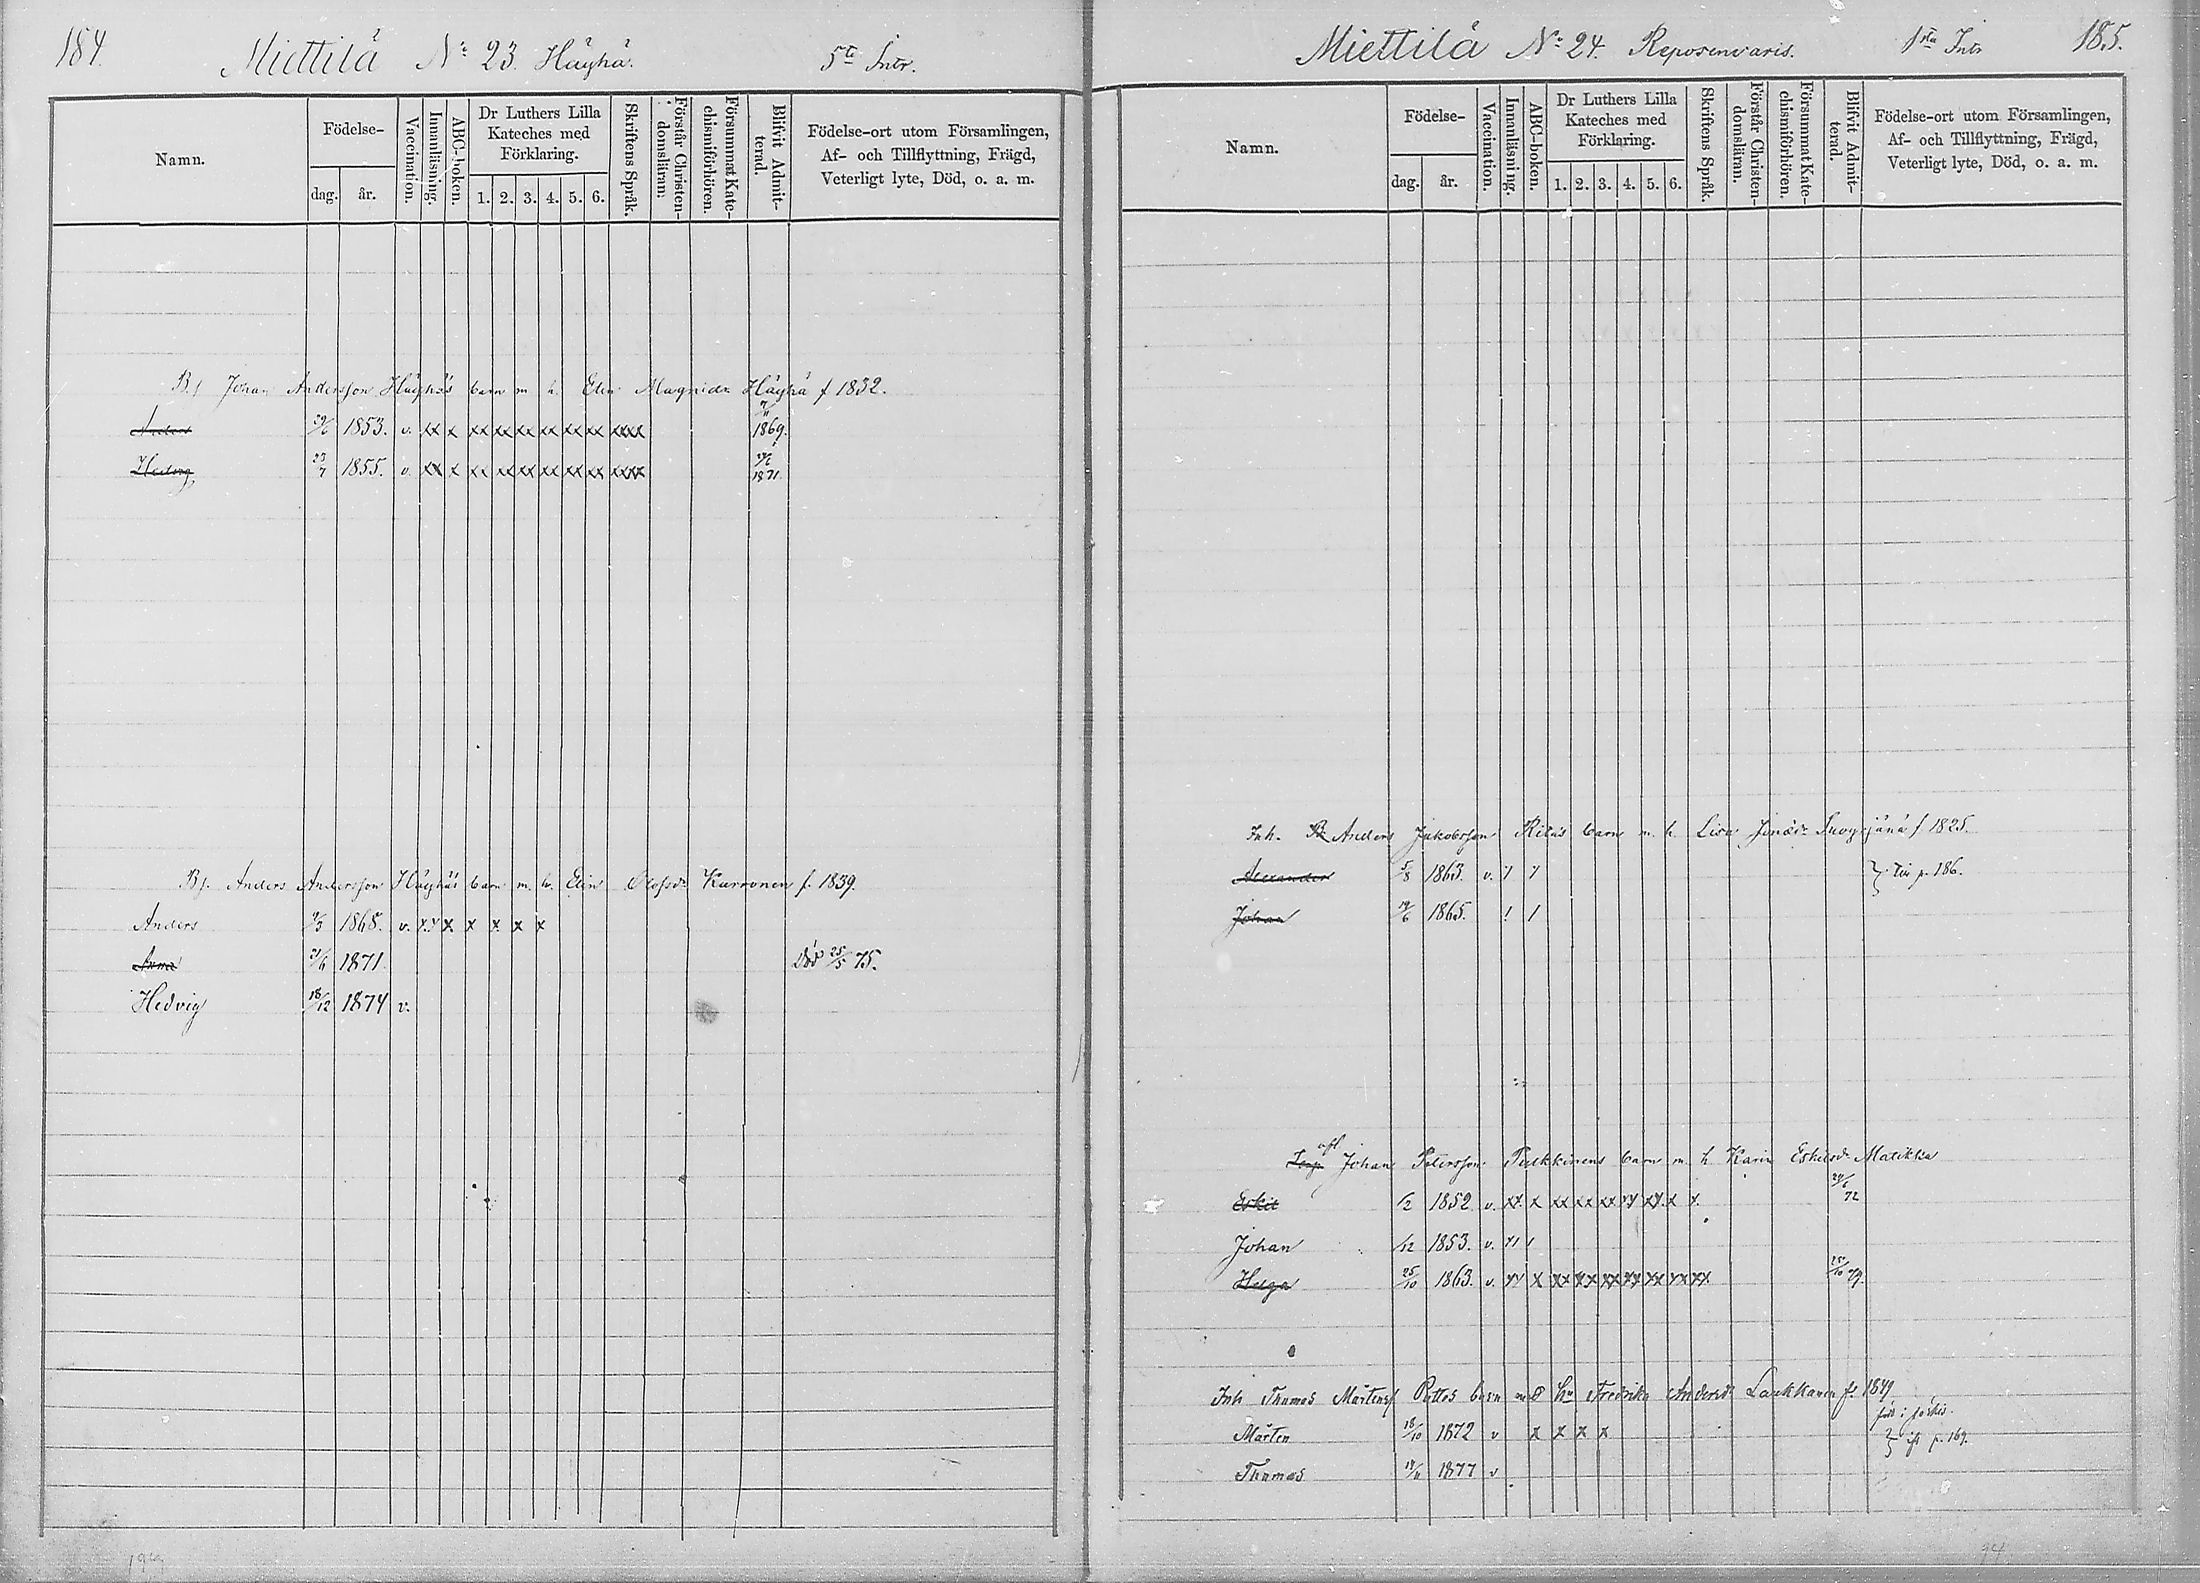 184.
Miettilä No 23. Häyhä. 5te Intr.
Namn.
Födelse-
dag. år.
Vaccination.
Innanläsning.
ABC-boken.
Dr Luthers Lilla Kateches med Förklaring.
1. 2. 3. 4. 5. 6.
Skriftens Språk.
Förstår Christendomsläran.
Försummat Katechismiförhören.
Blifvit Admitterad.
Födelse-ort utom Församlingen,
Af- och Tillflyttning, Frägd,
Veterligt lyte, Död, o. a. m.
Johan Andersson Häyhäs barn m. h. Elin Häyhä f 1832.
Anders 1853. v. xx x xx xx xx xx xx xx xxxx 7/11 1869.
Hedvig 23/7 1855. v. xx x xx xx xx xx xx xx xxxx 1871
Anders Andersson Häyhäs barn m. h. Elin Olofsdr Karronen f. 1839.
Anders 1868. v. x x x x x x
Anna 21/6 1871 Död 25/5 75.
Hedvig 18/12 1874 v.
Miettilä No 24. Reposenvaris. 1sta Intr 185.
Namn.
Födelse-
dag. år.
Vaccination.
Innanläsning.
ABC-boken.
Dr Luthers Lilla Kateches med Förklaring.
1. 2. 3. 4. 5. 6.
Skriftens Språk.
Förstår Christendomsläran.
Försummat Katechismiförhören.
Blifvit Admitterad.
Födelse-ort utom Församlingen,
Af- och Tillflyttning, Frägd,
Veterligt lyte, Död, o. a. m.
Inh. Anders Jakobsson barn m. h. Lisa f 1825.
Alexander 5/8 1863. v. } Till p. 186.
Johan 1865.
afl. Johan Petersson Pukkinens barn m. h Karin Eskilsdr Matikka
Eskil /2 1852 v. xx x xx xx xx xx xx x x. 72
Johan /12 1853. v.
Helga 25/10 1863. v. xx x xx xx xx xx xx xx xx 79.
Inh Thomas Mårtens barn med hu Fredrika Andersdr Laukkanen f. 1849
Mårten 18/10 1872 v x x x x } p. 169.
Thomas 1877 v